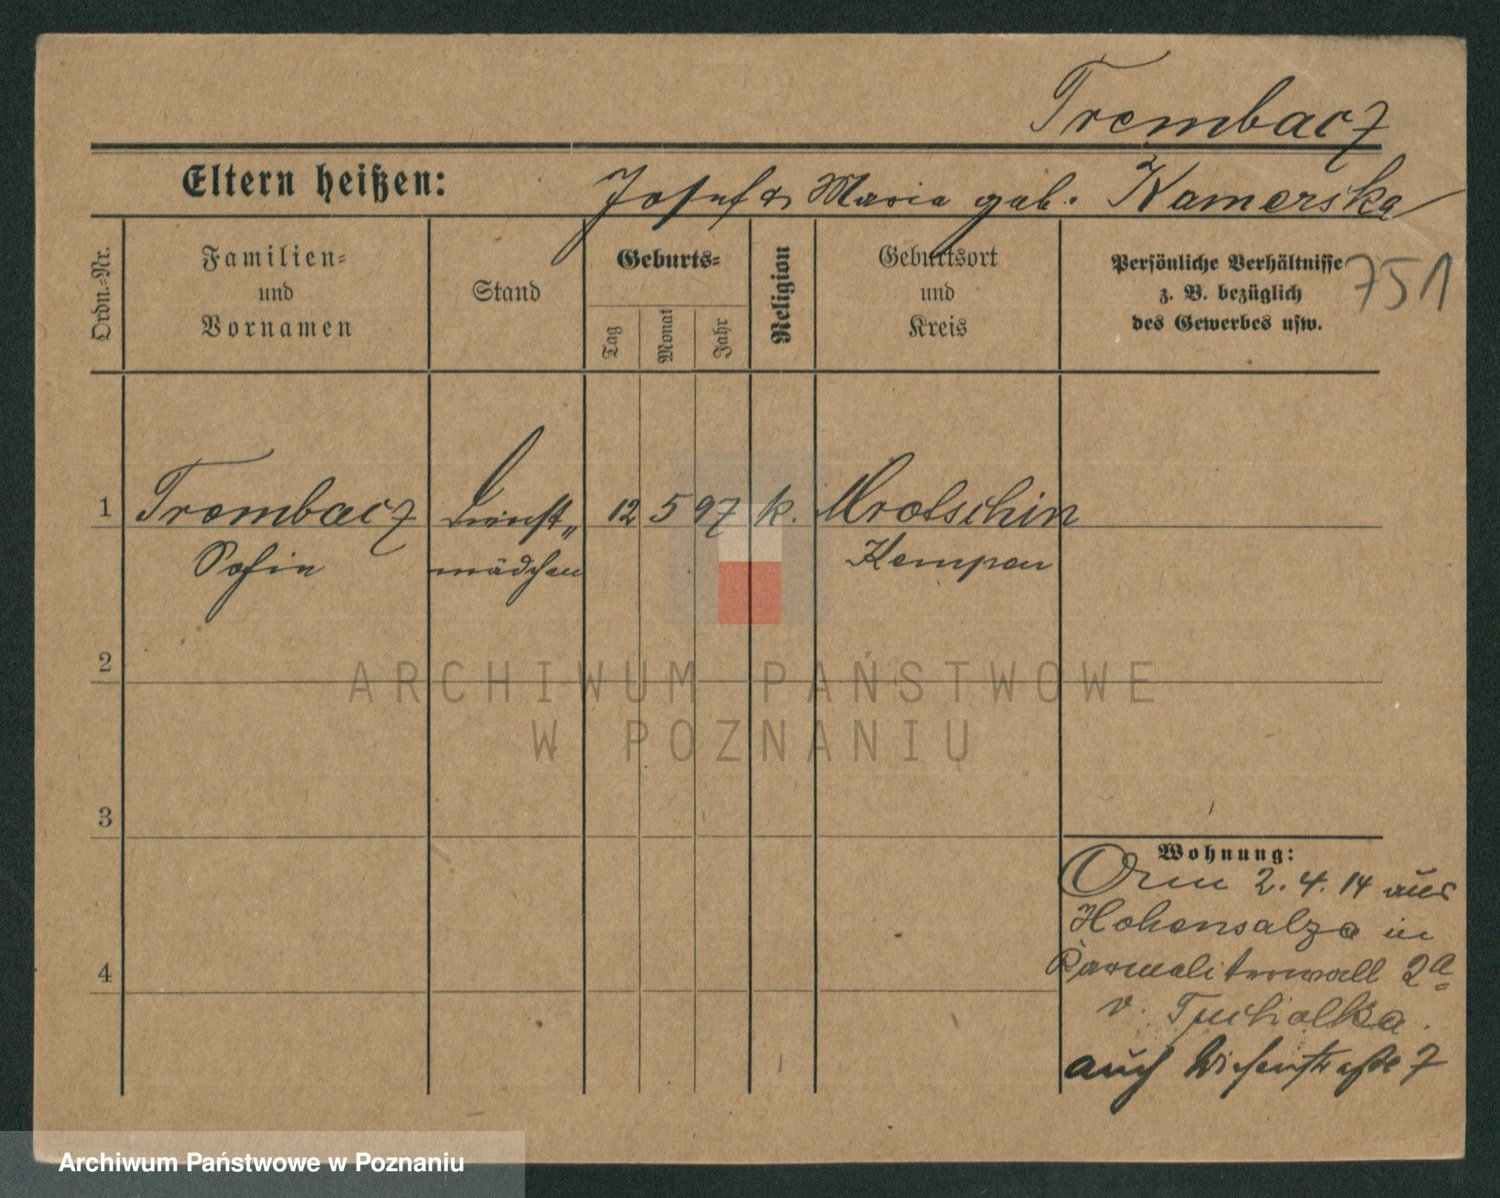 Trembacz
Eltern heißen: Josef & Maria geb. Kamerska
Ordn.-Nr.
Familien-
und
Vornamen
Stand
Geburts-
Tag
Monat
Jahr
Religion
Geburtsort
und
Kreis
Persönliche Verhältnisse
z. B. bezüglich
des Gewerbes usw.
751
1 Trembacz Dienst- 12 5 97 k. Mrotschin
Sofie mädchen Kempen
2
3
4
Wohnung:
2. 4. 14 aus
Hohensalza in
Karmeliterwall 2a
v. Tucholka.
auch Wiesenstraße 7
ARCHIWUM PAŃSTWOWE
W POZNANIU
Archiwum Państwowe w Poznaniu